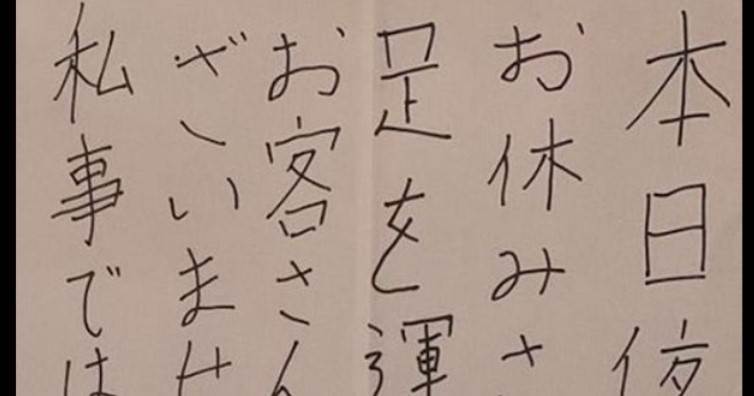 本日夜
お休みさ
足を運
お客さん
ざいませ
私事では